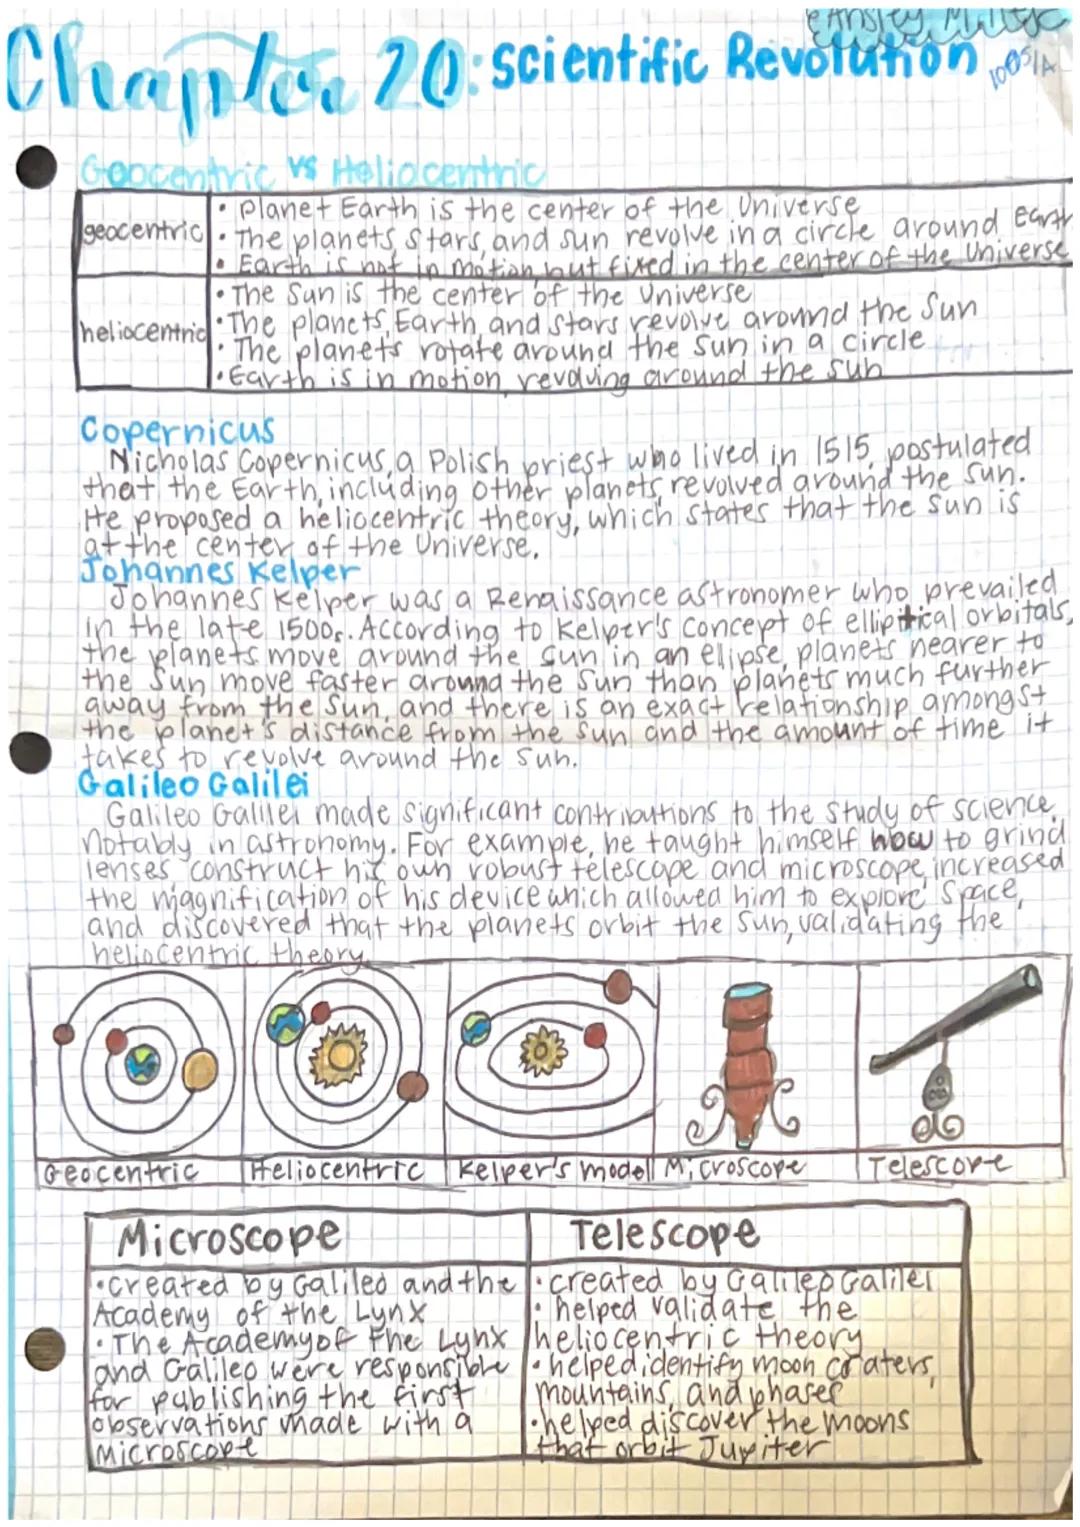 Chapter 20: Scientific Revolution
Geocentric vs Heliocentric
geocentric
• Planet Earth is the center of the Universe
• The planets, stars, and sun revolve in a circle around Earth
• Earth is not in motion but fixed in the center of the Universe
heliocentric
• The Sun is the center of the Universe
• The planets, Earth, and stars revolve around the Sun
• The planets rotate around the Sun in a circle
• Earth is in motion, revolving around the Sun
Copernicus
Nicholas Copernicus, a Polish priest who lived in 1515, postulated
that the Earth, including other planets, revolved around the Sun.
He proposed a heliocentric theory, which states that the Sun is
at the center of the Universe.
Johannes Kelper
Johannes Kelper was a Renaissance astronomer who prevailed
in the late 1500s. According to Kelper's concept of elliptical orbitals,
the planets move around the Sun in an ellipse, planets nearer to
the Sun move faster around the Sun than planets much further
away from the Sun, and there is an exact relationship amongst
the planet's distance from the Sun and the amount of time it
takes to revolve around the Sun.
Galileo Galilei
Galileo Galilei made significant contributions to the study of science,
Notably in astronomy. For example, he taught himself how to grind
lenses construct his own robust telescope and microscope, increased
the magnification of his device which allowed him to explore Space,
and discovered that the planets orbit the Sun, validating the
heliocentric theory.
Geocentric
Heliocentric
Kelper's model
Microscope
Telescope
Microscope
• created by Galileo and the
Academy of the Lynx
• The Academy of the Lynx
and Galileo were responsible
for publishing the first
observations made with a
Microscope
Telescope
• created by Galileo Galilei
• helped validate the
heliocentric theory
• helped identify moon craters,
mountains, and phases
• helped discover the moons
that orbit Jupiter